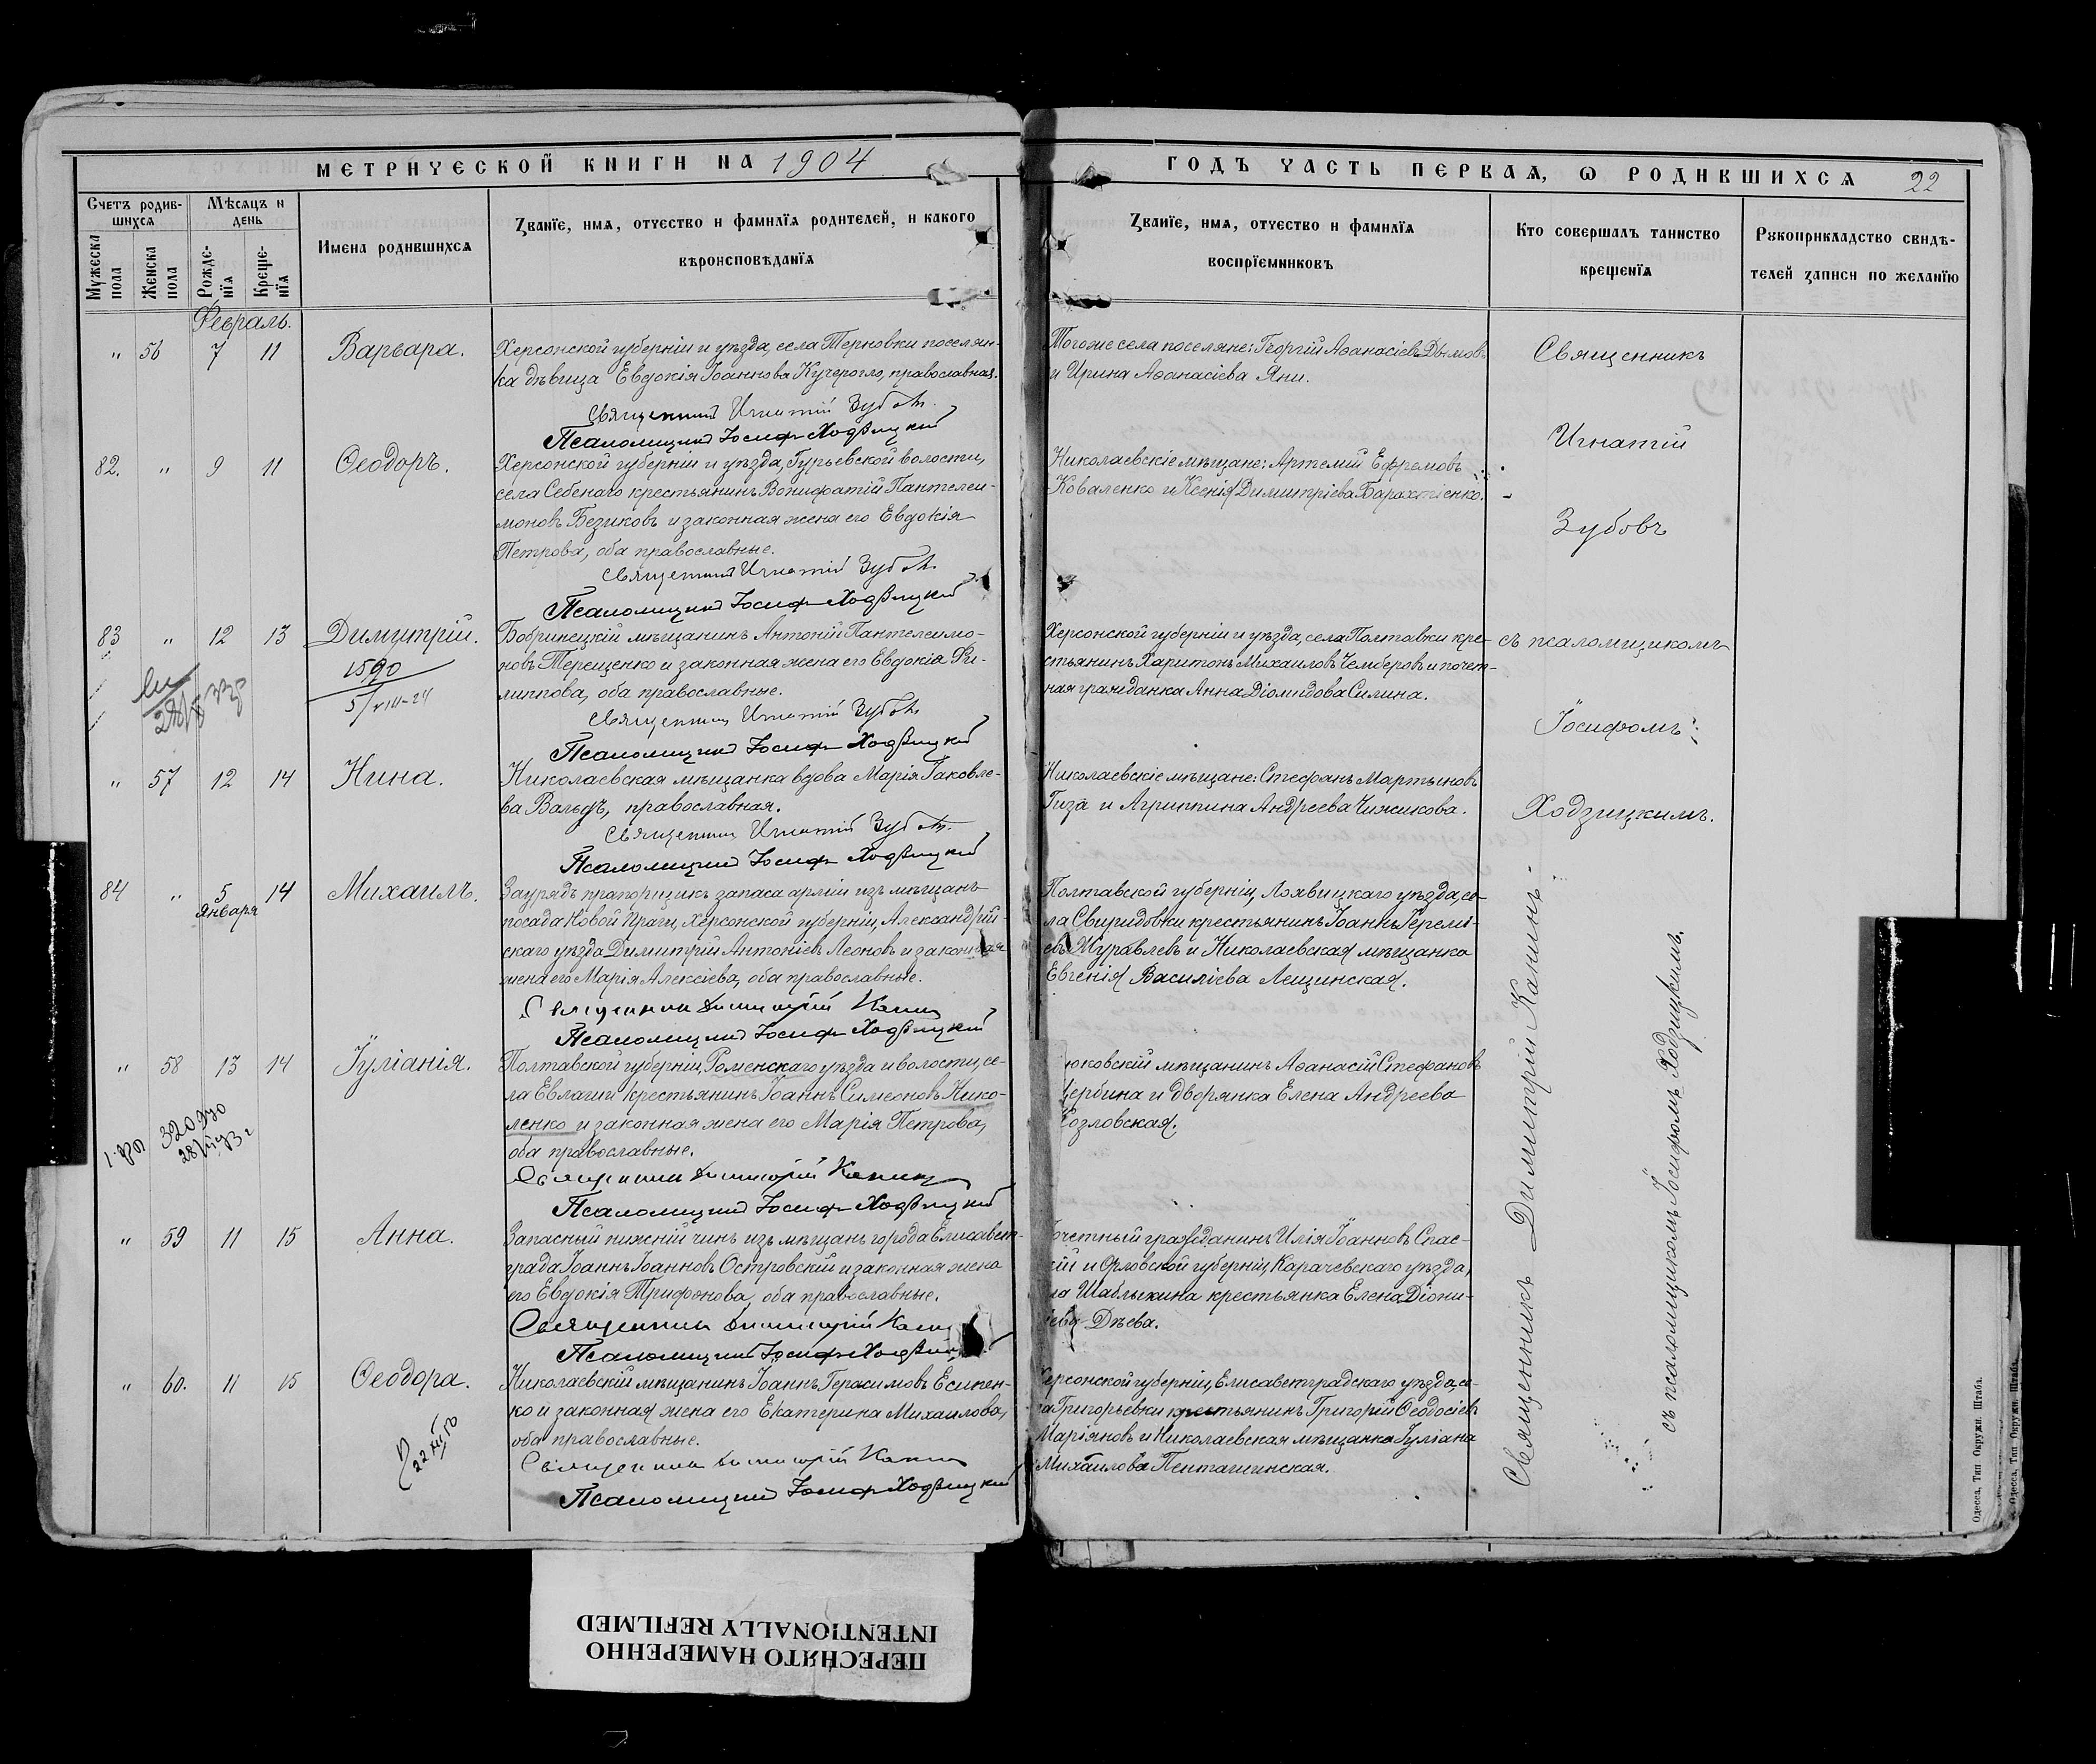 МЕТРИЧЕСКОЙ КНИГИ НА 1904
ГОДЪ ЧАСТЬ ПЕРВАЯ, Ѡ РОДИВШИХСЯ 22
Счетъ родив-
шихся
Мѣсяцъ и
день
Имена родившихся
Званїе, имя, отчество и фамилїя родителей, и какого
вѣроисповѣданїя
Мужеска
пола
Женска
пола
Рожде-
нїя
Креще-
нїя
Званїе, имя, отчество и фамилїя
воспрїемниковъ
Кто совершалъ таинство
крещенїя
Рукоприкладство свидѣ-
телей записи по желанїю
Февраль.
" 56 7 11 Варвара.
Херсонской губерніи и уѣзда, села Терновки поселян-
ка дѣвица Евдокія Іоаннова Кучерогло, православная.
Священникъ Игнатій Зубовъ.
Псаломщикъ Іосифъ Ходзицкій
Того же села поселяне: Георгій Аѳанасіевъ Дымовъ
и Ирина Аѳанасіева Яни.
82. " 9 11 Ѳеодоръ.
Херсонской губерніи и уѣзда, Гурьевской волости,
села Себенаго крестьянинъ Вонифатій Пантелеи-
моновъ Безиковъ и законная жена его Евдокія
Петрова, оба православные.
Священникъ Игнатій Зубовъ.
Псаломщикъ Іосифъ Ходзицкій
Николаевскіе мѣщане: Артемій Ефремовъ
Коваленко и Ксенія Димитріева Барахтіенко.
83 " 12 13 Димитрій.
1590
5/VIII-24
Бобринецкій мѣщанинъ Антоній Пантелеимо-
новъ Терещенко и законная жена его Евдокія Фи-
липпова, оба православные.
Священникъ Игнатій Зубовъ
Псаломщикъ Іосифъ Ходзицкій
Херсонской губерніи и уѣзда, села Полтавки кре-
стьянинъ Харитонъ Михаиловъ Чемберовъ и почет-
ная гражданка Анна Діомидова Силина.
" 57 12 14 Нина.
Николаевская мѣщанка вдова Марія Іаковле-
ва Вальдъ, православная.
Священникъ Игнатій Зубовъ.
Псаломщикъ Іосифъ Ходзицкій
Николаевскіе мѣщане: Стефанъ Мартыновъ
Гиза и Агриппина Андреева Чижикова.
84 " 5 14 Михаилъ.
января
Заурядъ прапорщикъ запаса арміи изъ мѣщанъ
посада Новой Праги, Херсонской губерніи, Александрій-
скаго уѣзда Димитрій Антоніевъ Леоновъ и законная
жена его Марія Алексіева, оба православные.
Священникъ Димитрій Канинъ
Псаломщикъ Іосифъ Ходзицкій
Полтавской губерніи, Лохвицкаго уѣзда, се-
ла Свиридовки крестьянинъ Іоаннъ Іеремі-
евъ Журавлевъ и Николаевская мѣщанка
Евгенія Василіева Лещинская.
" 58 13 14 Іуліанія.
Полтавской губерніи, Роменскаго уѣзда и волости, се-
ла Евлаши крестьянинъ Іоаннъ Симеоновъ Нико-
ленко и законная жена его Марія Петрова,
оба православные.
Священникъ Димитрій Канинъ
Псаломщикъ Іосифъ Ходзицкій
юковскій мѣщанинъ Аѳанасій Стефановъ
Щербина и дворянка Елена Андреева
Козловская.
" 59 11 15 Анна.
Запасный нижній чинъ изъ мѣщанъ города Елисавет-
града Іоаннъ Іоанновъ Островскій и законная жена
его Евдокія Трифонова, оба православные.
Священникъ Димитрій Канинъ
Псаломщикъ Іосифъ Ходзицкій
Почетный гражданинъ Илія Іоанновъ Спас-
кій и Орловской губерніи, Карачевскаго уѣзда,
ла Шаблыкина крестьянка Елена Діони-
сіева Дѣева.
" 60. 11 15 Ѳеодора.
Николаевскій мѣщанинъ Іоаннъ Герасимовъ Есипен-
ко и законная жена его Екатерина Михаилова,
оба православные.
Священникъ Димитрій Канинъ
Псаломщикъ Іосифъ Ходзицкій
Херсонской губерніи, Елисаветградскаго уѣзда, се-
ла Григорьевки крестьянинъ Григорій Ѳеодосіевъ
Маріяновъ и Николаевская мѣщанка Іуліана
Михаилова
Священникъ
Игнатій
Зубовъ
съ псаломщикомъ
Іосифомъ
Ходзицкимъ.
Священникъ Димитрій Канинъ
съ псаломщикомъ Іосифомъ Ходзицкимъ.
Одесса. Тип Окружн. Штаба.
Одесса. Тип Окружн. Штаба.
ПЕРЕСНЯТО НАМЕРЕННО
INTENTIONALLY REFILMED